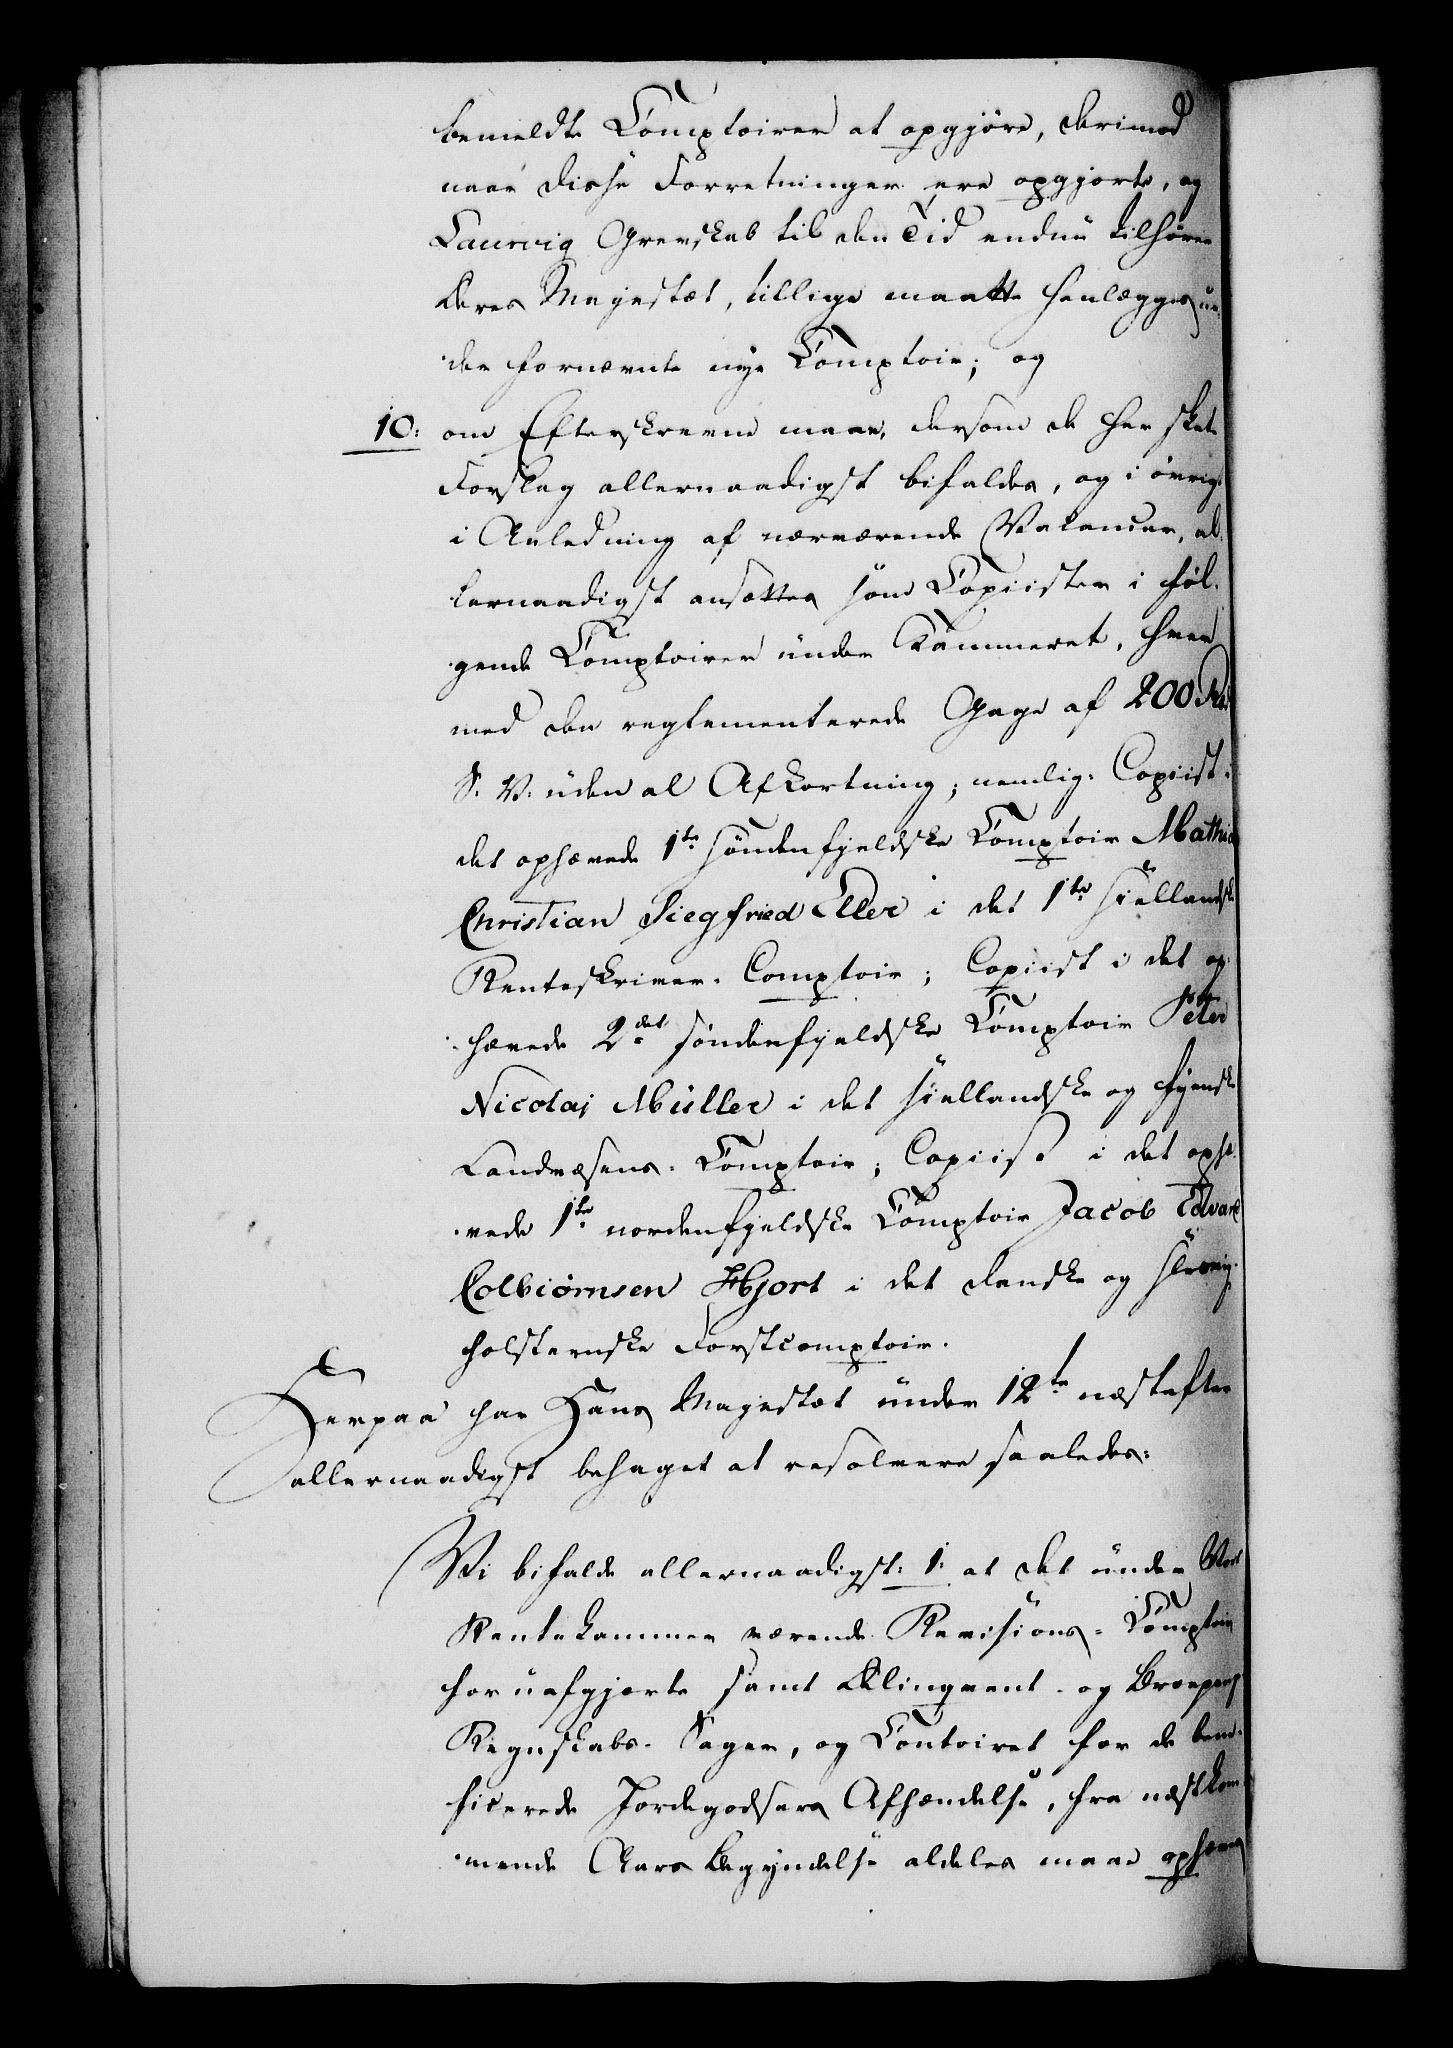 bemeldte Comptoirer at opgjöre, derimod
naar disse Forretninger ere opgjorte, og
Laurvig Grevskab til den Tid endnu tilhörer
Deres Majestæt, tillige maatte henlægges un-
der fornævnte nye Comptoir; og
10: om Efterskrevne maae, dersom de her skete
Forslag allernaadigst bifaldes, og i övrigt
i Anledning af nærværende Vacancer, al-
lernaadigst ansættes som Copiister i föl-
gende Comptoirer under Kammeret, hver
med den reglementerede Gage af 200 Rd
S. V. uden al Afkortning; nemlig: Copiist i
det ophævede 1te söndenfjeldske Comptoir Mathias
Christian Siegfried Eller i det 1te siellandske
Renteskriver-Comptoir; Copiist i det op-
hævede 2det söndenfjeldske Comptoir Peter
Nicolaj Müller i det siellandske og fyenske
Landvæsens-Comptoir; Copiist i det ophæ-
vede 1te nordenfjeldske Comptoir Jacob Edvard
Colbiörnsen Hjort i det danske og slesvig-
holsteenske Forstcomptoir.
Herpaa har Hans Majestæt under 12te næstefter
allernaadigst behaget at resolvere saaledes:
Vi bifalde allernaadigst: 1: at det under Vort
Rentekammer værende Revisions-Comptoir
for uafgjorte samt Delinqvent- og Brovpenge
Regnskabs-Sager, og Contoiret for de bene-
ficerede Jordegodsers Afhændelse, fra næstkom-
mende Aars Begyndelse aldeles maae ophæves